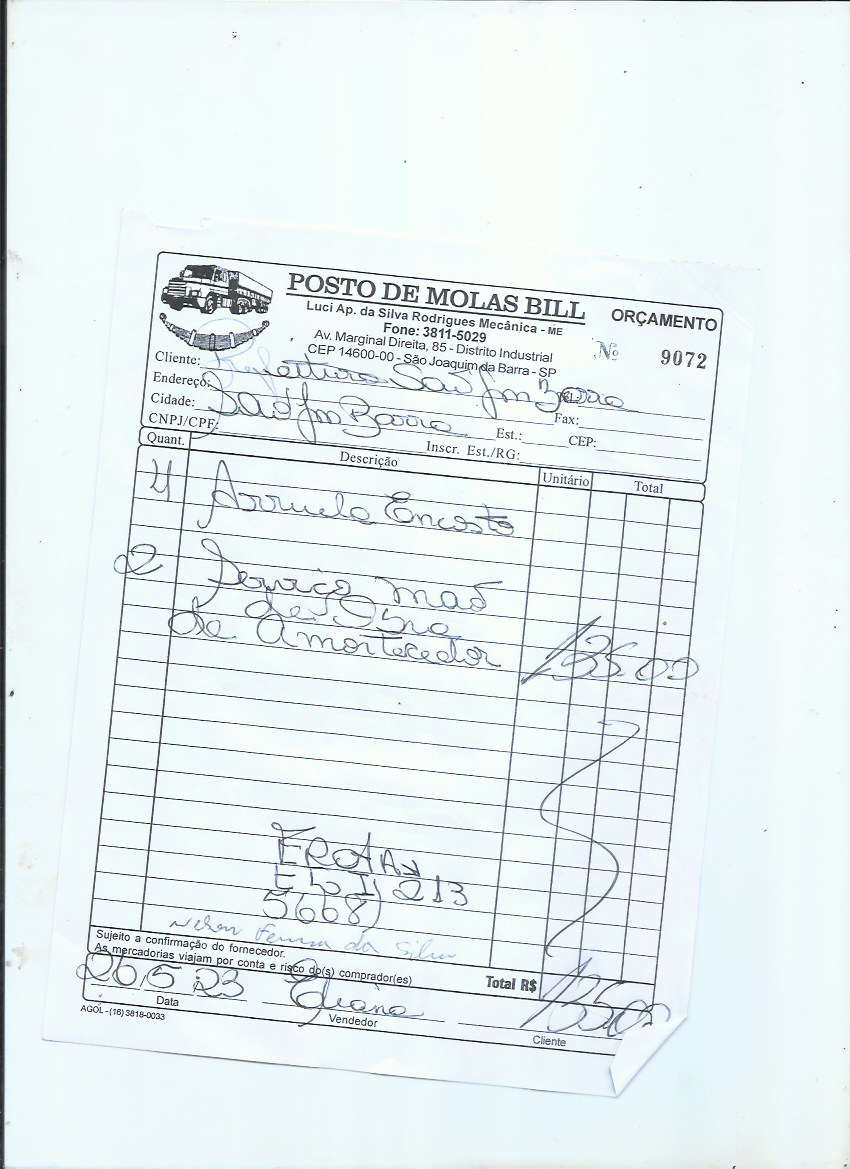 POSTO DE MOLAS BILL
ORÇAMENTO
Luci Ap. da Silva Rodrigues Mecânica - ME
Fone: 3811-5029
Av. Marginal Direita, 85 - Distrito Industrial
CEP 14600-00 - São Joaquim da Barra - SP
Nº 9072
Cliente: Prefeitura São Jm Barra
Endereço: Fax:
Cidade: São Jm Barra Est.: CEP:
CNPJ/CPF: Inscr. Est./RG:
Quant. Descrição Unitário Total
4 Arruela Encosto
2 Serviço mão
de Obra
de Amortecedor 135.00
213
5668
Nelson da Silva
Sujeito a confirmação do fornecedor.
As mercadorias viajam por conta e risco do(s) comprador(es)
Total R$ 135.00
26,5 23
Data Vendedor Cliente
AGOL - (16) 3818-0033